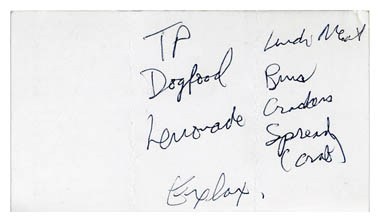 TP
Dogfood
Lemonade
Exlax.
Lunch Meat
Buns
Crackers
Spread
(crab)